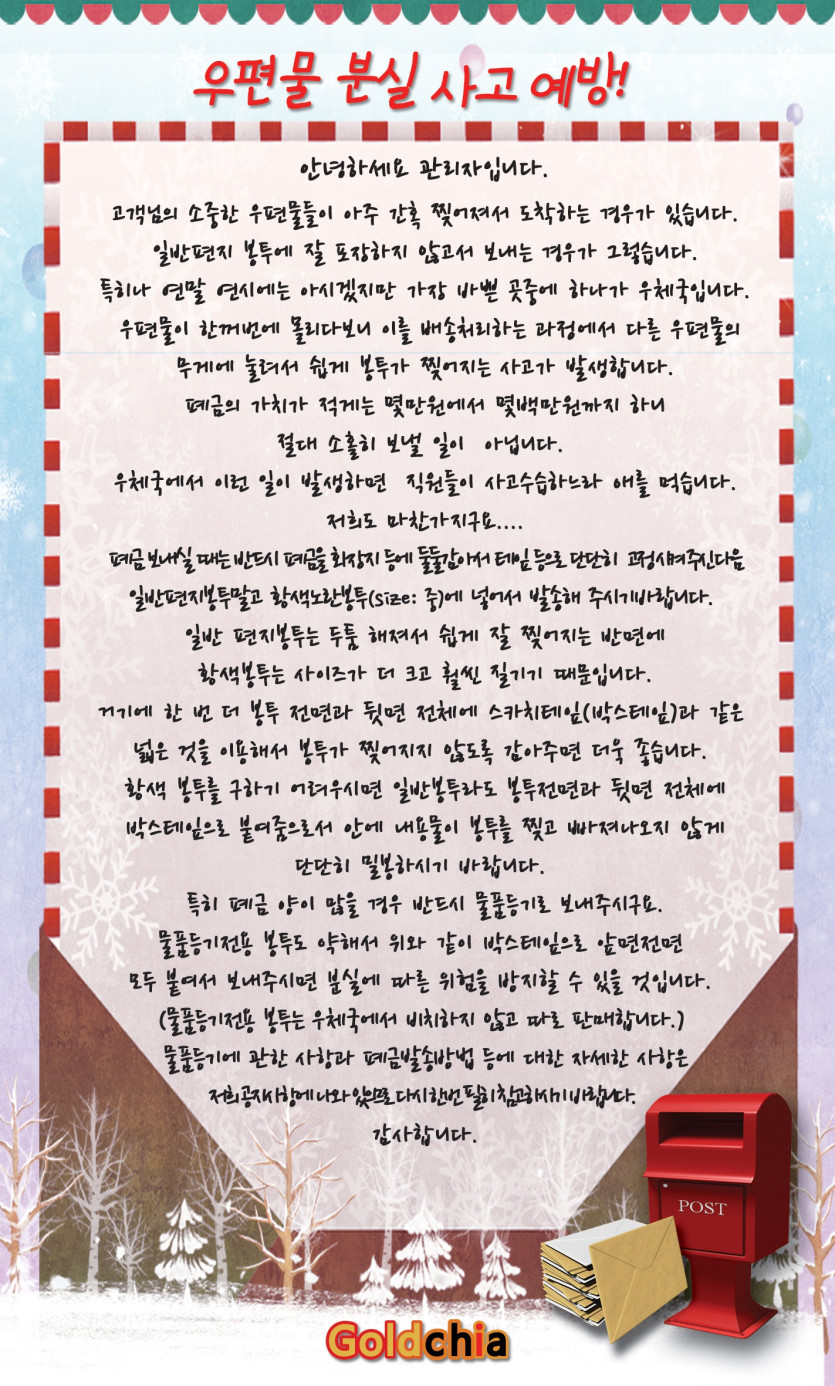 우편물 분실 사고 예방!
안녕하세요 관리자입니다.
고객님의 소중한 우편물들이 아주 간혹 찢어져서 도착하는 경우가 있습니다.
일반편지 봉투에 잘 포장하지 않고서 보내는 경우가 그렇습니다.
특히나 연말 연시에는 아시겠지만 가장 바쁜 곳중에 하나가 우체국입니다.
우편물이 한꺼번에 몰리다보니 이를 배송처리하는 과정에서 다른 우편물의
무게에 눌려서 쉽게 봉투가 찢어지는 사고가 발생합니다.
폐금의 가치가 적게는 몇만원에서 몇백만원까지 하니
절대 소홀히 보낼 일이 아닙니다.
우체국에서 이런 일이 발생하면 직원들이 사고수습하느라 애를 먹습니다.
저희도 마찬가지구요....
폐금 보내실 때는 반드시 폐금을 화장지 등에 둘둘감아서 테잎 등으로 단단히 고정시켜주신다음
일반편지봉투말고 황색노란봉투(size: 중)에 넣어서 발송해 주시기바랍니다.
일반 편지봉투는 두툼 해져서 쉽게 잘 찢어지는 반면에
황색봉투는 사이즈가 더 크고 훨씬 질기기 때문입니다.
거기에 한 번 더 봉투 전면과 뒷면 전체에 스카치테잎(박스테잎)과 같은
넓은 것을 이용해서 봉투가 찢어지지 않도록 감아주면 더욱 좋습니다.
황색 봉투를 구하기 어려우시면 일반봉투라도 봉투전면과 뒷면 전체에
박스테잎으로 붙여줌으로서 안에 내용물이 봉투를 찢고 빠져나오지 않게
단단히 밀봉하시기 바랍니다.
특히 폐금 양이 많을 경우 반드시 물품등기로 보내주시구요.
물품등기전용 봉투도 약해서 위와 같이 박스테잎으로 앞면전면
모두 붙여서 보내주시면 분실에 따른 위험을 방지할 수 있을 것입니다.
(물품등기전용 봉투는 우체국에서 비치하지 않고 따로 판매합니다.)
물품등기에 관한 사항과 폐금발송방법 등에 대한 자세한 사항은
저희 공지사항에 나와 있으므로 다시 한번 필히 참고하시기 바랍니다.
감사합니다.
POST
Goldchia